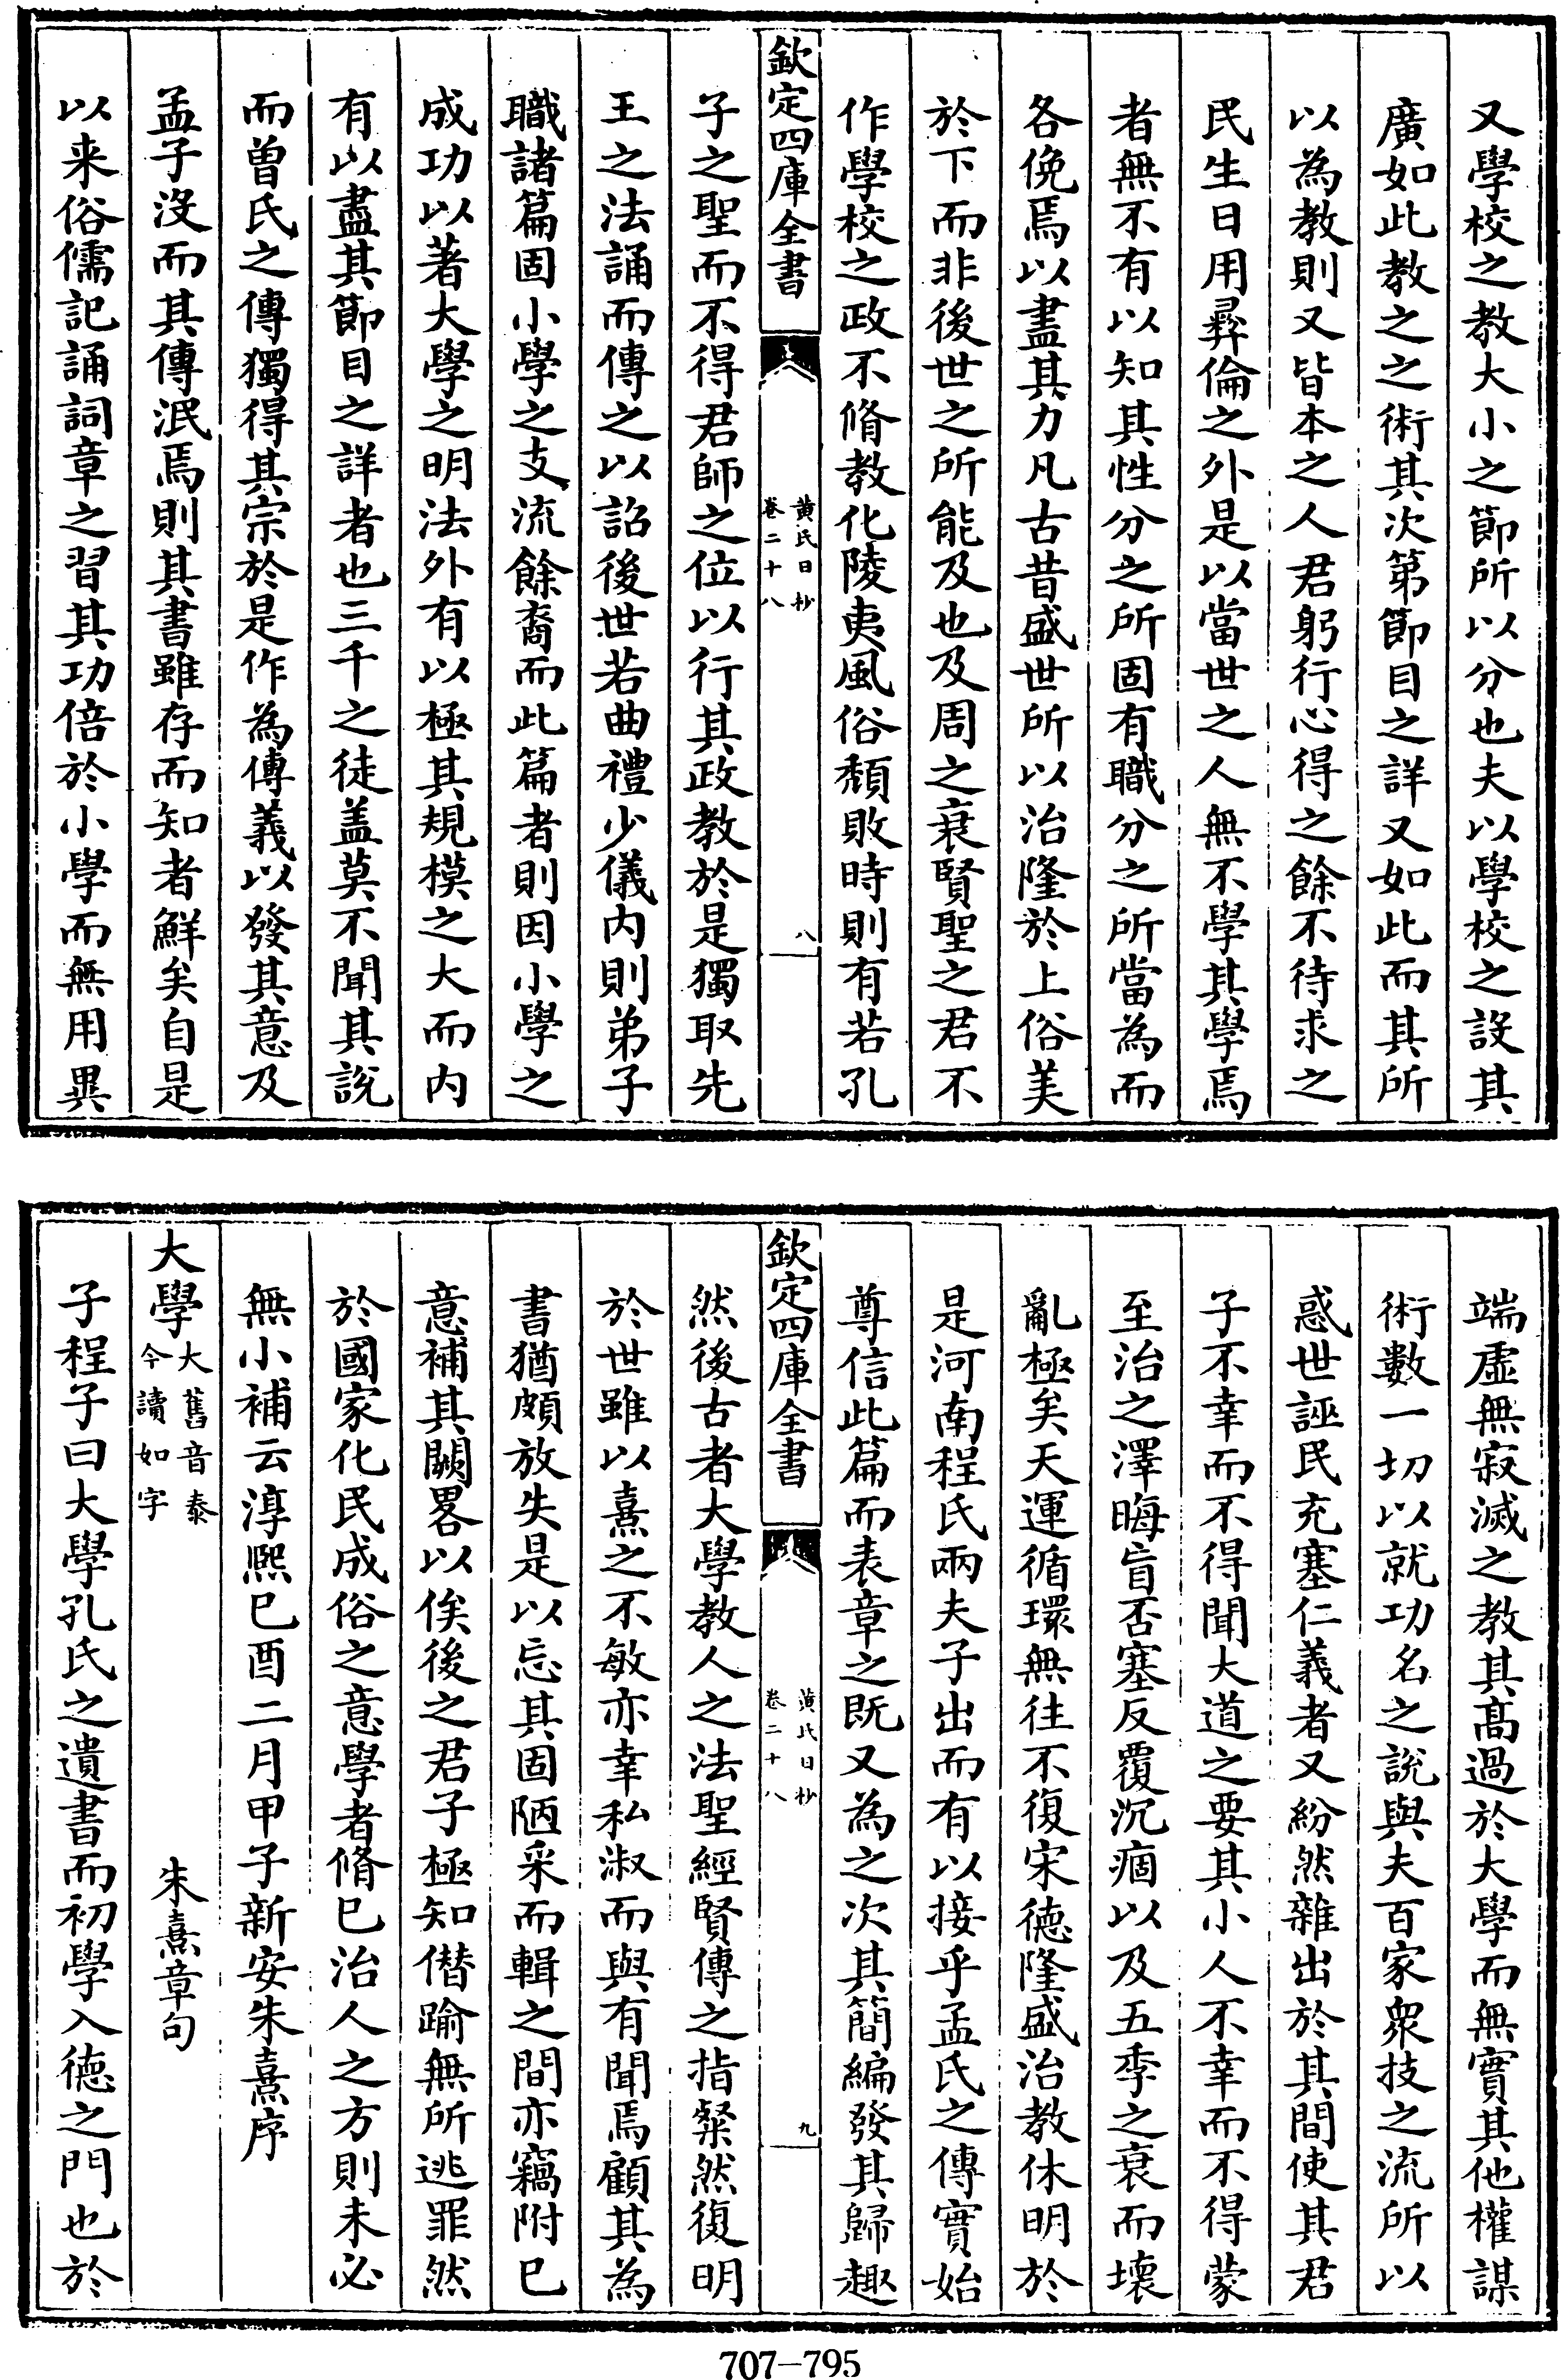 又學校之教大小之節所以分也夫以學校之設其
廣如此教之之術其次第節目之詳又如此而其所
以為教則又皆本之人君躬行心得之餘不待求之
民生日用彛倫之外是以當世之人無不學其學焉
者無不有以知其性分之所固有職分之所當為而
各俛焉以盡其力凡古昔盛世所以治隆於上俗美
於下而非後世之所能及也及周之衰賢聖之君不
作學校之政不脩教化陵夷風俗頽敗時則有若孔
欽定四庫全書
黄氏日抄
卷二十八
八
子之聖而不得君師之位以行其政教於是獨取先
王之法誦而傳之以詔後世若曲禮少儀内則弟子
職諸篇固小學之支流餘裔而此篇者則因小學之
成功以著大學之明法外有以極其規模之大而内
有以盡其節目之詳者也三千之徒盖莫不聞其說
而曽氏之傳獨得其宗於是作為傳義以發其意及
孟子沒而其傳泯焉則其書雖存而知者鮮矣自是
以来俗儒記誦詞章之習其功倍於小學而無用異
端虚無寂滅之教其髙過於大學而無實其他權謀
術數一切以就功名之說與夫百家衆技之流所以
惑世誣民充塞仁義者又紛然雜出於其間使其君
子不幸而不得聞大道之要其小人不幸而不得蒙
至治之澤晦盲否塞反覆沉痼以及五季之衰而壞
亂極矣天運循環無往不復宋德隆盛治教休明於
是河南程氏兩夫子出而有以接乎孟氏之傳實始
尊信此篇而表章之既又為之次其簡編發其歸趣
欽定四庫全書
黄氏日抄
卷二十八
九
然後古者大學教人之法聖經賢傳之指粲然復明
於世雖以熹之不敏亦幸私淑而與有聞焉顧其為
書猶頗放失是以忘其固陋采而輯之間亦竊附已
意補其闕畧以俟後之君子極知僭踰無所逃罪然
於國家化民成俗之意學者脩已治人之方則未必
無小補云淳熙已酉二月甲子新安朱熹序
大學
大舊音泰
今讀如字
朱熹章句
子程子曰大學孔氏之遺書而初學入德之門也於
707-795